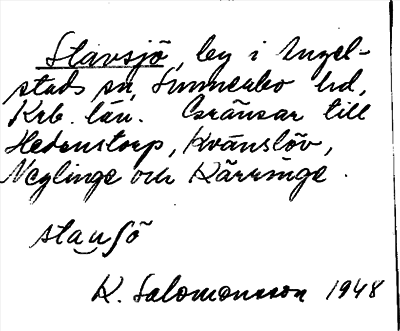 Slavsjö, by i Ingel-
stads sn, Sunnerbo hd,
Krb. län. Gränsar till
Hedenstorp, Kvänslöv,
Neglinge och Kärringe.
slausö
K. Salomonsson 1948